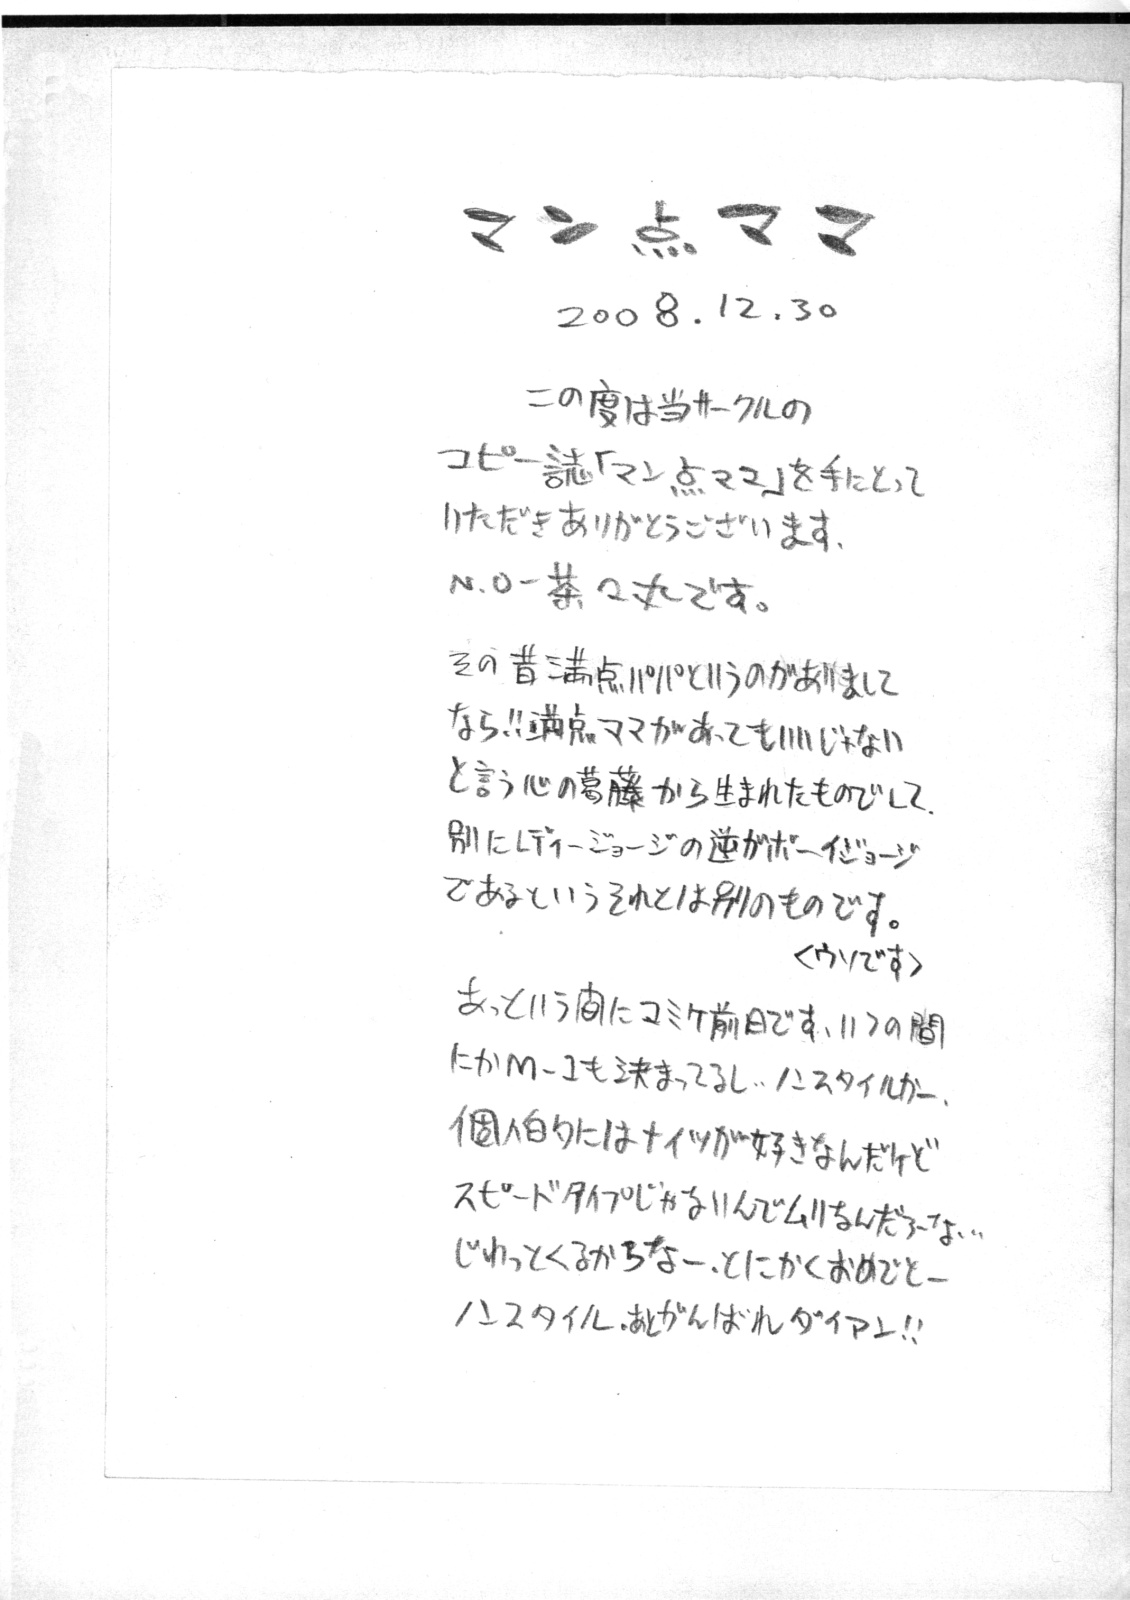 マン点ママ
2008.12.30
この度は当サークルの
コピー誌「マン点ママ」を手にとって
いただきありがとうございます、
N.O-茶々丸です。
その昔満点パパというのがありまして
なら!!満点ママがあってもいいじゃない
と言う心の葛藤から生まれたものでして、
別にレディージョージの逆がボーイジョージ
であるというそれとは別のものです。
<ウソです>
あっという間にコミケ前日です、いつの間
にかM-1も決まってるし..ノンスタイルかー、
個人的にはナイツが好きなんだけど
スピードタイプじゃないんでムリなんだろーな...
じわっとくるからなー、とにかくおめでとー
ノンスタイル、あとがんばれダイアン!!